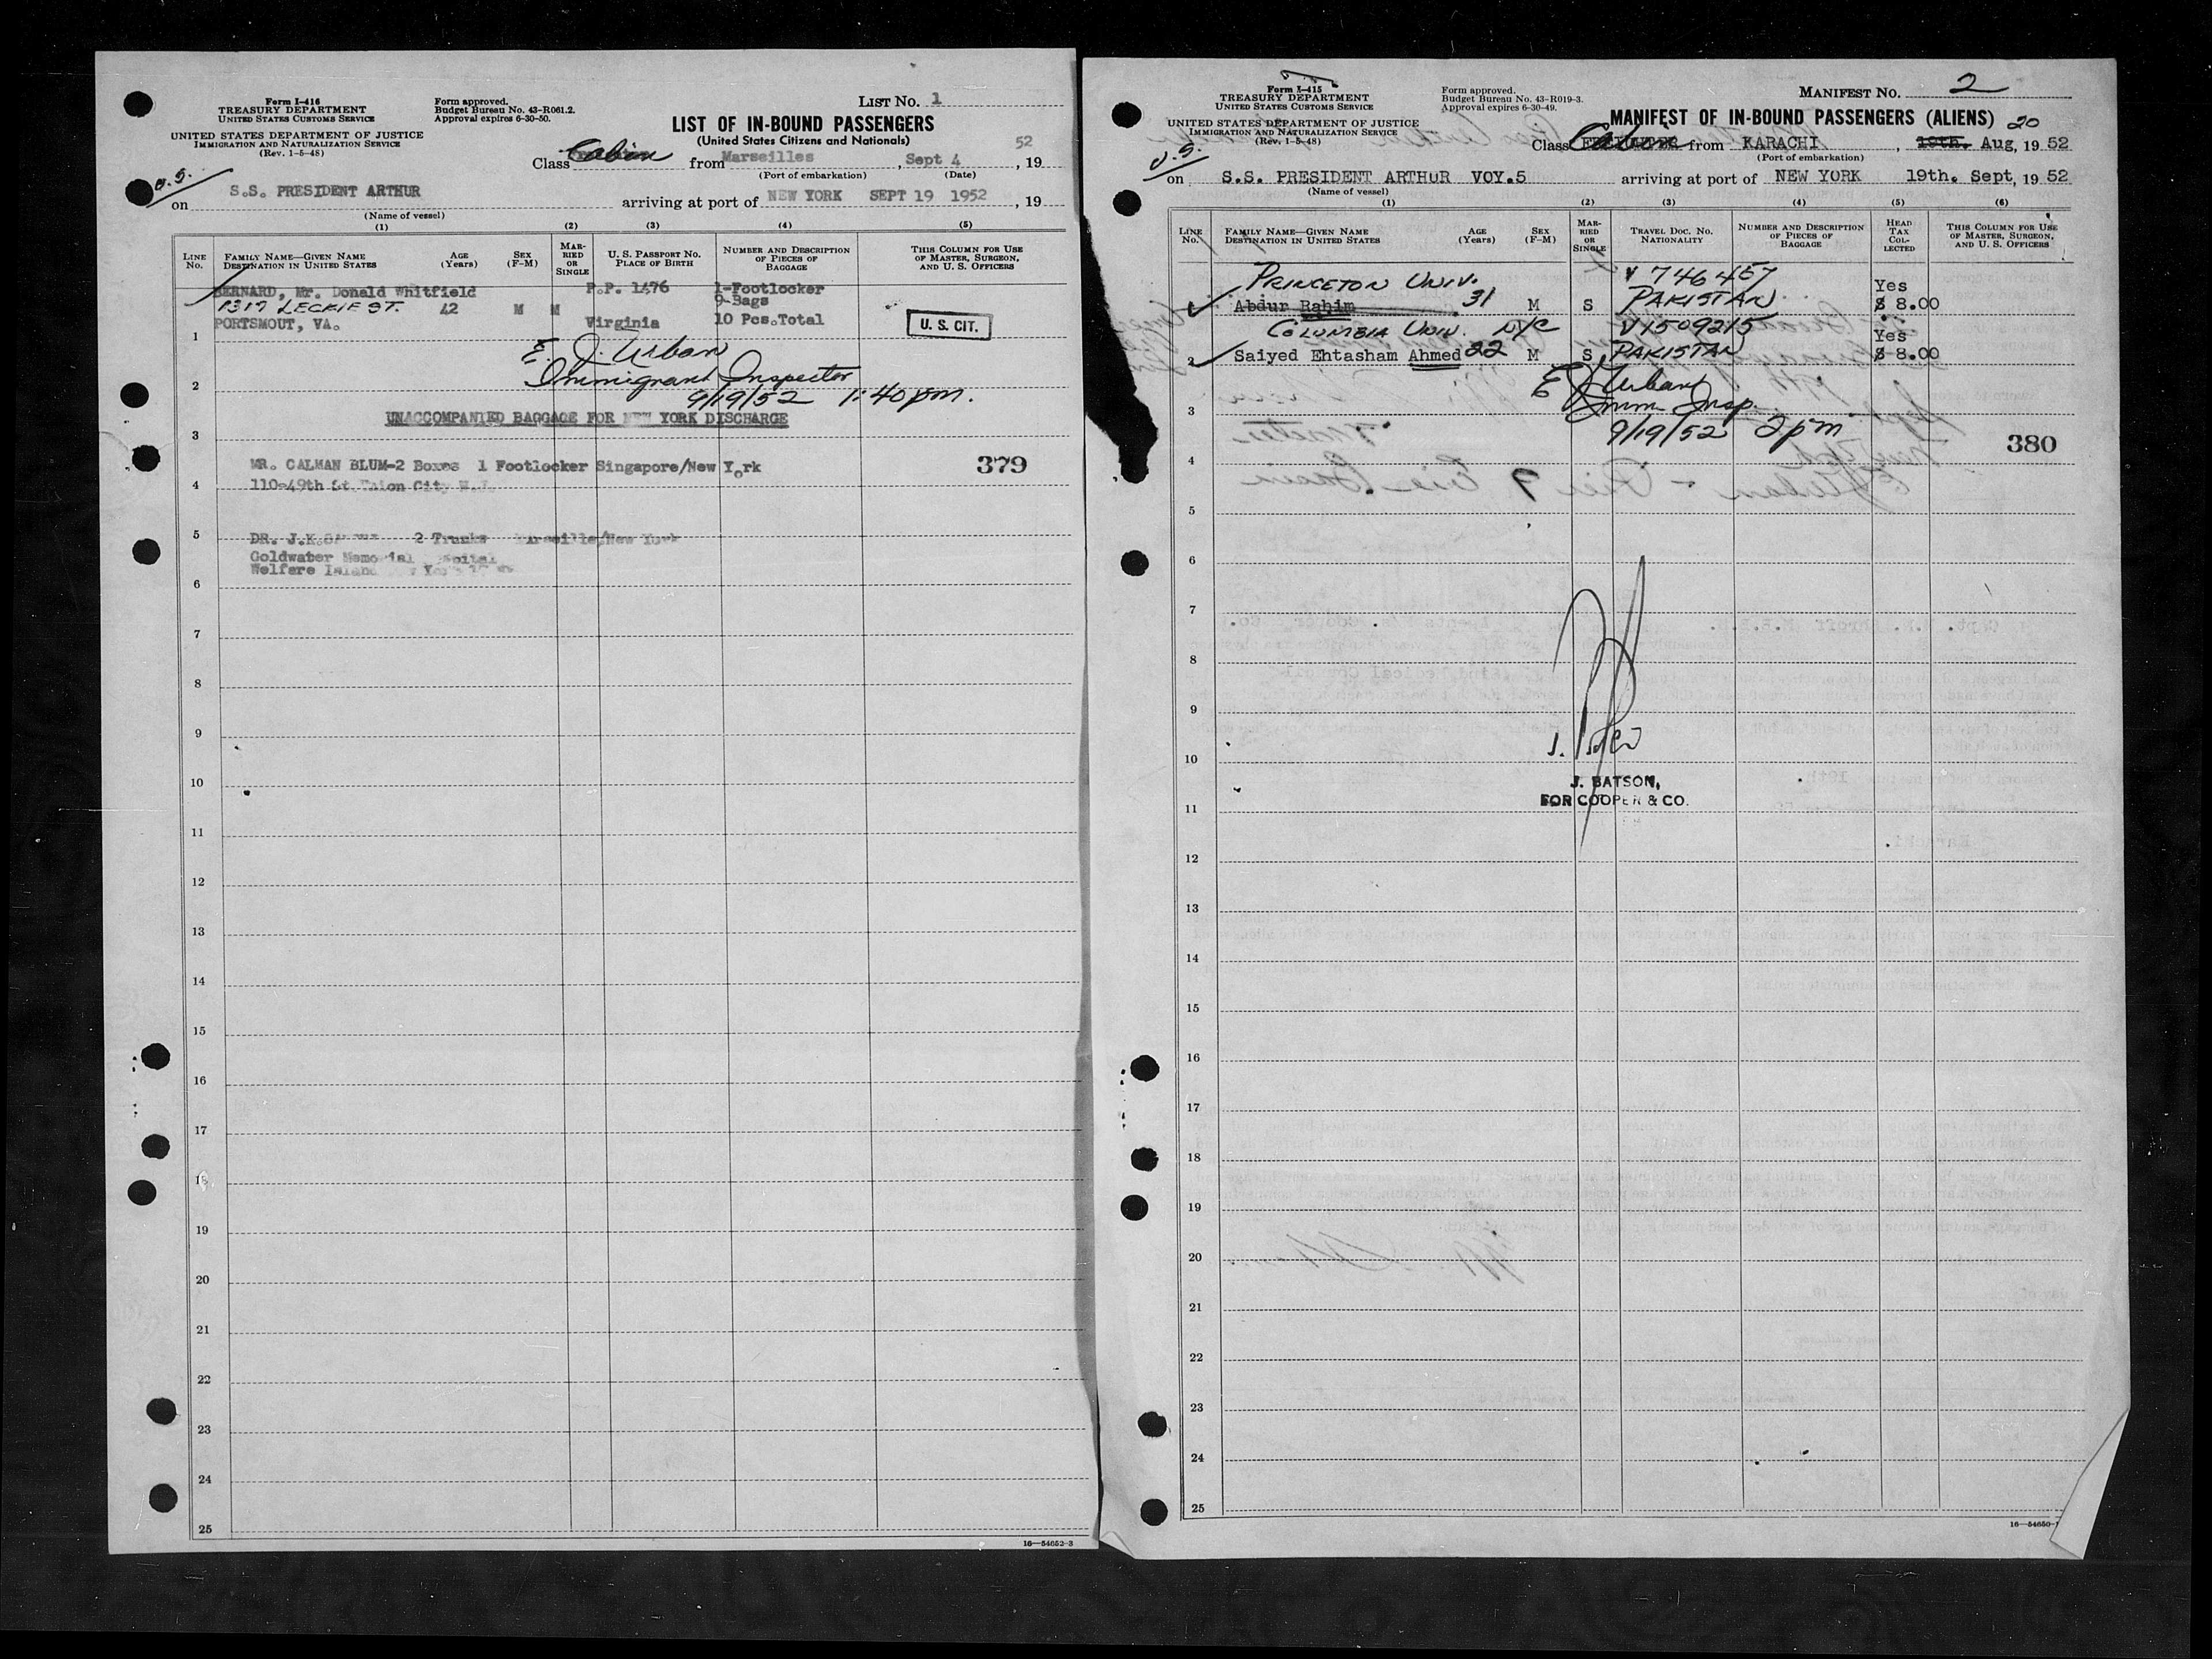 Form I-416
TREASURY DEPARTMENT
UNITED STATES CUSTOMS SERVICE
UNITED STATES DEPARTMENT OF JUSTICE
IMMIGRATION AND NATURALIZATION SERVICE
(Rev. 1-5-48)
Form approved.
Budget Bureau No. 43-R061.2.
Approval expires 6-30-50.
LIST NO. 1
LIST OF IN-BOUND PASSENGERS
(United States Citizens and Nationals)
Class Cabin from Marseilles, Sept 4, 19 52
(Port of embarkation) (Date)
U.S.
on S.S. PRESIDENT ARTHUR arriving at port of NEW YORK SEPT 19 1952, 19
(Name of vessel)
(1) (2) (3) (4) (5)
LINE No. FAMILY NAME—GIVEN NAME DESTINATION IN UNITED STATES AGE (Years) SEX (F-M) MARRIED OR SINGLE U. S. PASSPORT NO. PLACE OF BIRTH NUMBER AND DESCRIPTION OF PIECES OF BAGGAGE THIS COLUMN FOR USE OF MASTER, SURGEON, AND U. S. OFFICERS
BERNARD, Mr. Donald Whitfield P.P. 1476 1-Footlocker
1317 LECKIE ST. 42 M M 9-Bags
PORTSMOUT, VA. Virginia 10 Pcs.Total U. S. CIT.
1
E. J. Urban
Immigrant Inspector
2
9/19/52 1:40 pm.
UNACCOMPANIED BAGGAGE FOR NEW YORK DISCHARGE
3
MR. CALMAN BLUM-2 Boxes 1 Footlocker Singapore/New York 379
4
110-49th St. Union City
5
DR. J.K. 2 Trunks Marseille/New York
Goldwater Memorial Hospital
Welfare Island
6
7
8
9
10
11
12
13
14
15
16
17
18
19
20
21
22
23
24
25
16—54652-3
Form I-415
TREASURY DEPARTMENT
UNITED STATES CUSTOMS SERVICE
UNITED STATES DEPARTMENT OF JUSTICE
IMMIGRATION AND NATURALIZATION SERVICE
(Rev. 1-5-48)
Form approved.
Budget Bureau No. 43-R019-3.
Approval expires 6-30-49.
MANIFEST NO. 2
MANIFEST OF IN-BOUND PASSENGERS (ALIENS)
20
Class Cabin from KARACHI, 19th. Aug, 19 52
(Port of embarkation)
U.S.
on S.S. PRESIDENT ARTHUR VOY.5 arriving at port of NEW YORK 19th. Sept, 19 52
(Name of vessel)
(1) (2) (3) (4) (5) (6)
LINE No. FAMILY NAME—GIVEN NAME DESTINATION IN UNITED STATES AGE (Years) SEX (F-M) MARRIED OR SINGLE TRAVEL DOC. NO. NATIONALITY NUMBER AND DESCRIPTION OF PIECES OF BAGGAGE HEAD TAX COLLECTED THIS COLUMN FOR USE OF MASTER, SURGEON, AND U. S. OFFICERS
PRINCETON UNIV. V 746457 Yes
Abdur Rahim 31 M S PAKISTAN $ 8.00
COLUMBIA UNIV. NYC V1509215 Yes
2 Saiyed Ehtasham Ahmed 22 M S PAKISTAN $ 8.00
E J Urban
Imm. Insp.
3
9/19/52 2 pm
380
4
5
6
7
8
9
10
J. BATSON,
FOR COOPER & CO.
11
12
13
14
15
16
17
18
19
20
21
22
23
24
25
16—54650-1